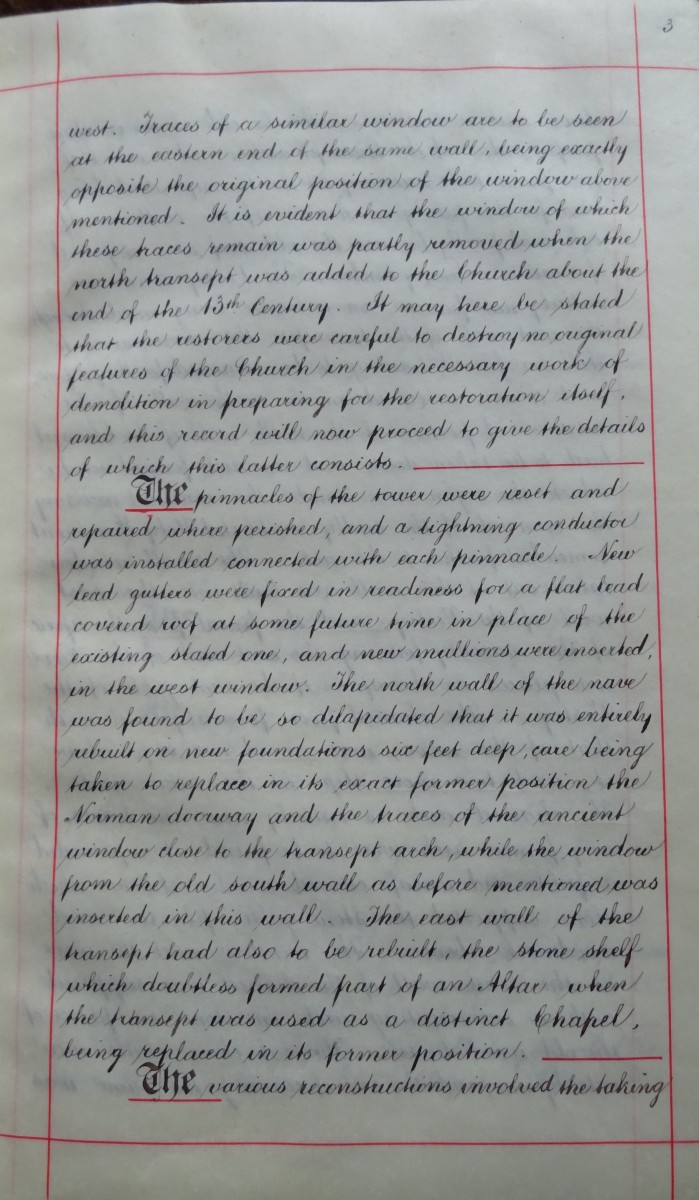 3
west. Traces of a similar window are to be seen
at the eastern end of the same wall, being exactly
opposite the original position of the window above
mentioned. It is evident that the window of which
these traces remain was partly removed when the
north transept was added to the Church about the
end of the 13th Century. It may here be stated
that the restorers were careful to destroy no original
features of the Church in the necessary work of
demolition in preparing for the restoration itself,
and this record will now proceed to give the details
of which this latter consists.
The pinnacles of the tower were reset and
repaired where perished, and a lightning conductor
was installed connected with each pinnacle. New
lead gutters were fixed in readiness for a flat lead
covered roof at some future time in place of the
existing slated one, and new mullions were inserted,
in the west window. The north wall of the nave
was found to be so dilapidated that it was entirely
rebuilt on new foundations six feet deep, care being
taken to replace in its exact former position the
Norman doorway and the traces of the ancient
window close to the transept arch, while the window
from the old south wall as before mentioned was
inserted in this wall. The east wall of the
transept had also to be rebuilt, the stone shelf
which doubtless formed part of an Altar when
the transept was used as a distinct Chapel,
being replaced in its former position.
The various reconstructions involved the taking